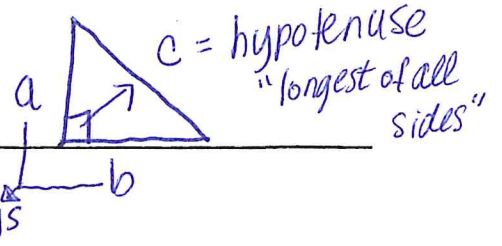 c = hypotenuse
"longest of all
sides"
a
b